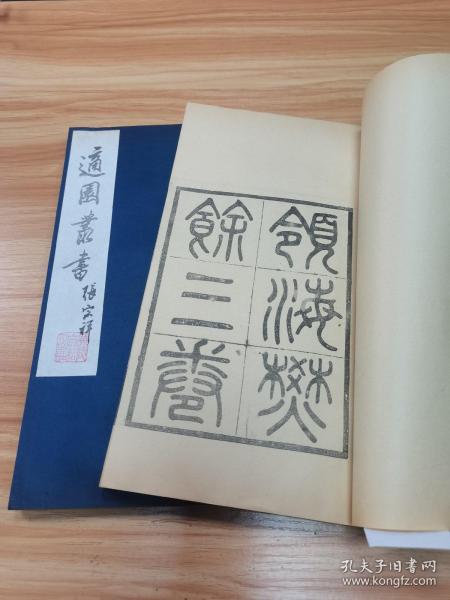 適園叢書
張宗祥
領海焚
餘三卷
孔夫子旧书网
www.kongfz.com